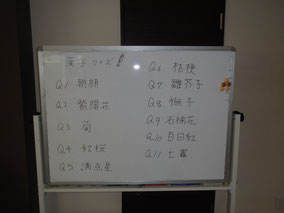 漢字クイズ
Q1 朝顔
Q2 紫陽花
Q3 菊
Q4 秋桜
Q5 満点星
Q6 桔梗
Q7 雛芥子
Q8 撫子
Q9 石楠花
Q10 百日紅
Q11